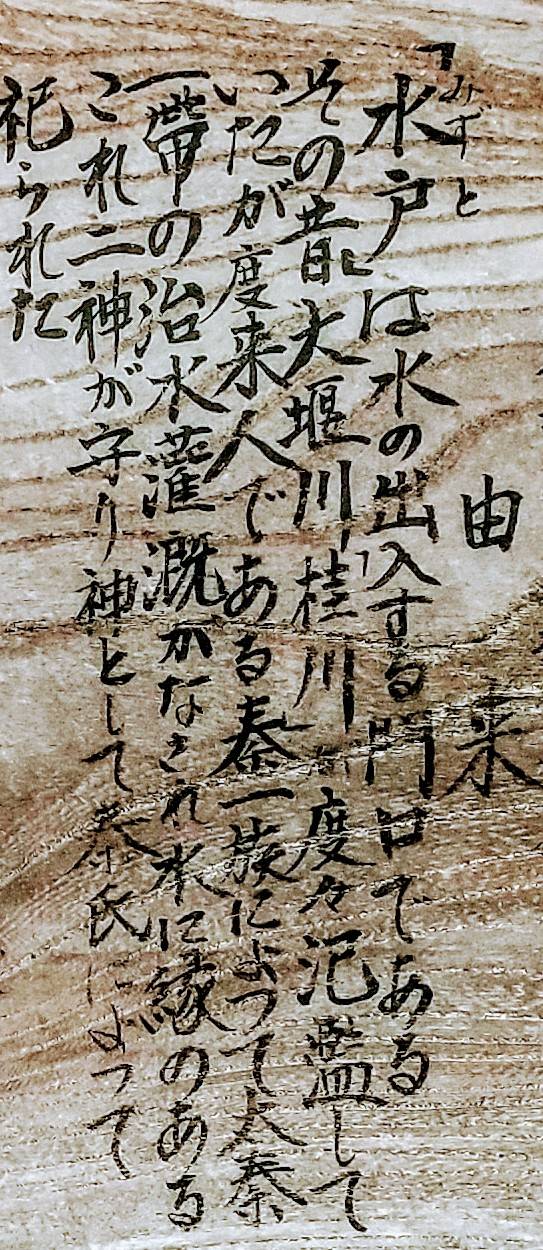 由来
みずと
「水戸は水の出入する門口である
その昔大堰川「桂川 度々氾濫して
いたが度来人である秦一族によって太秦
一帯の治水灌漑がなされ水に縁のある
これ二神が守り神として秦氏によって
祀られた